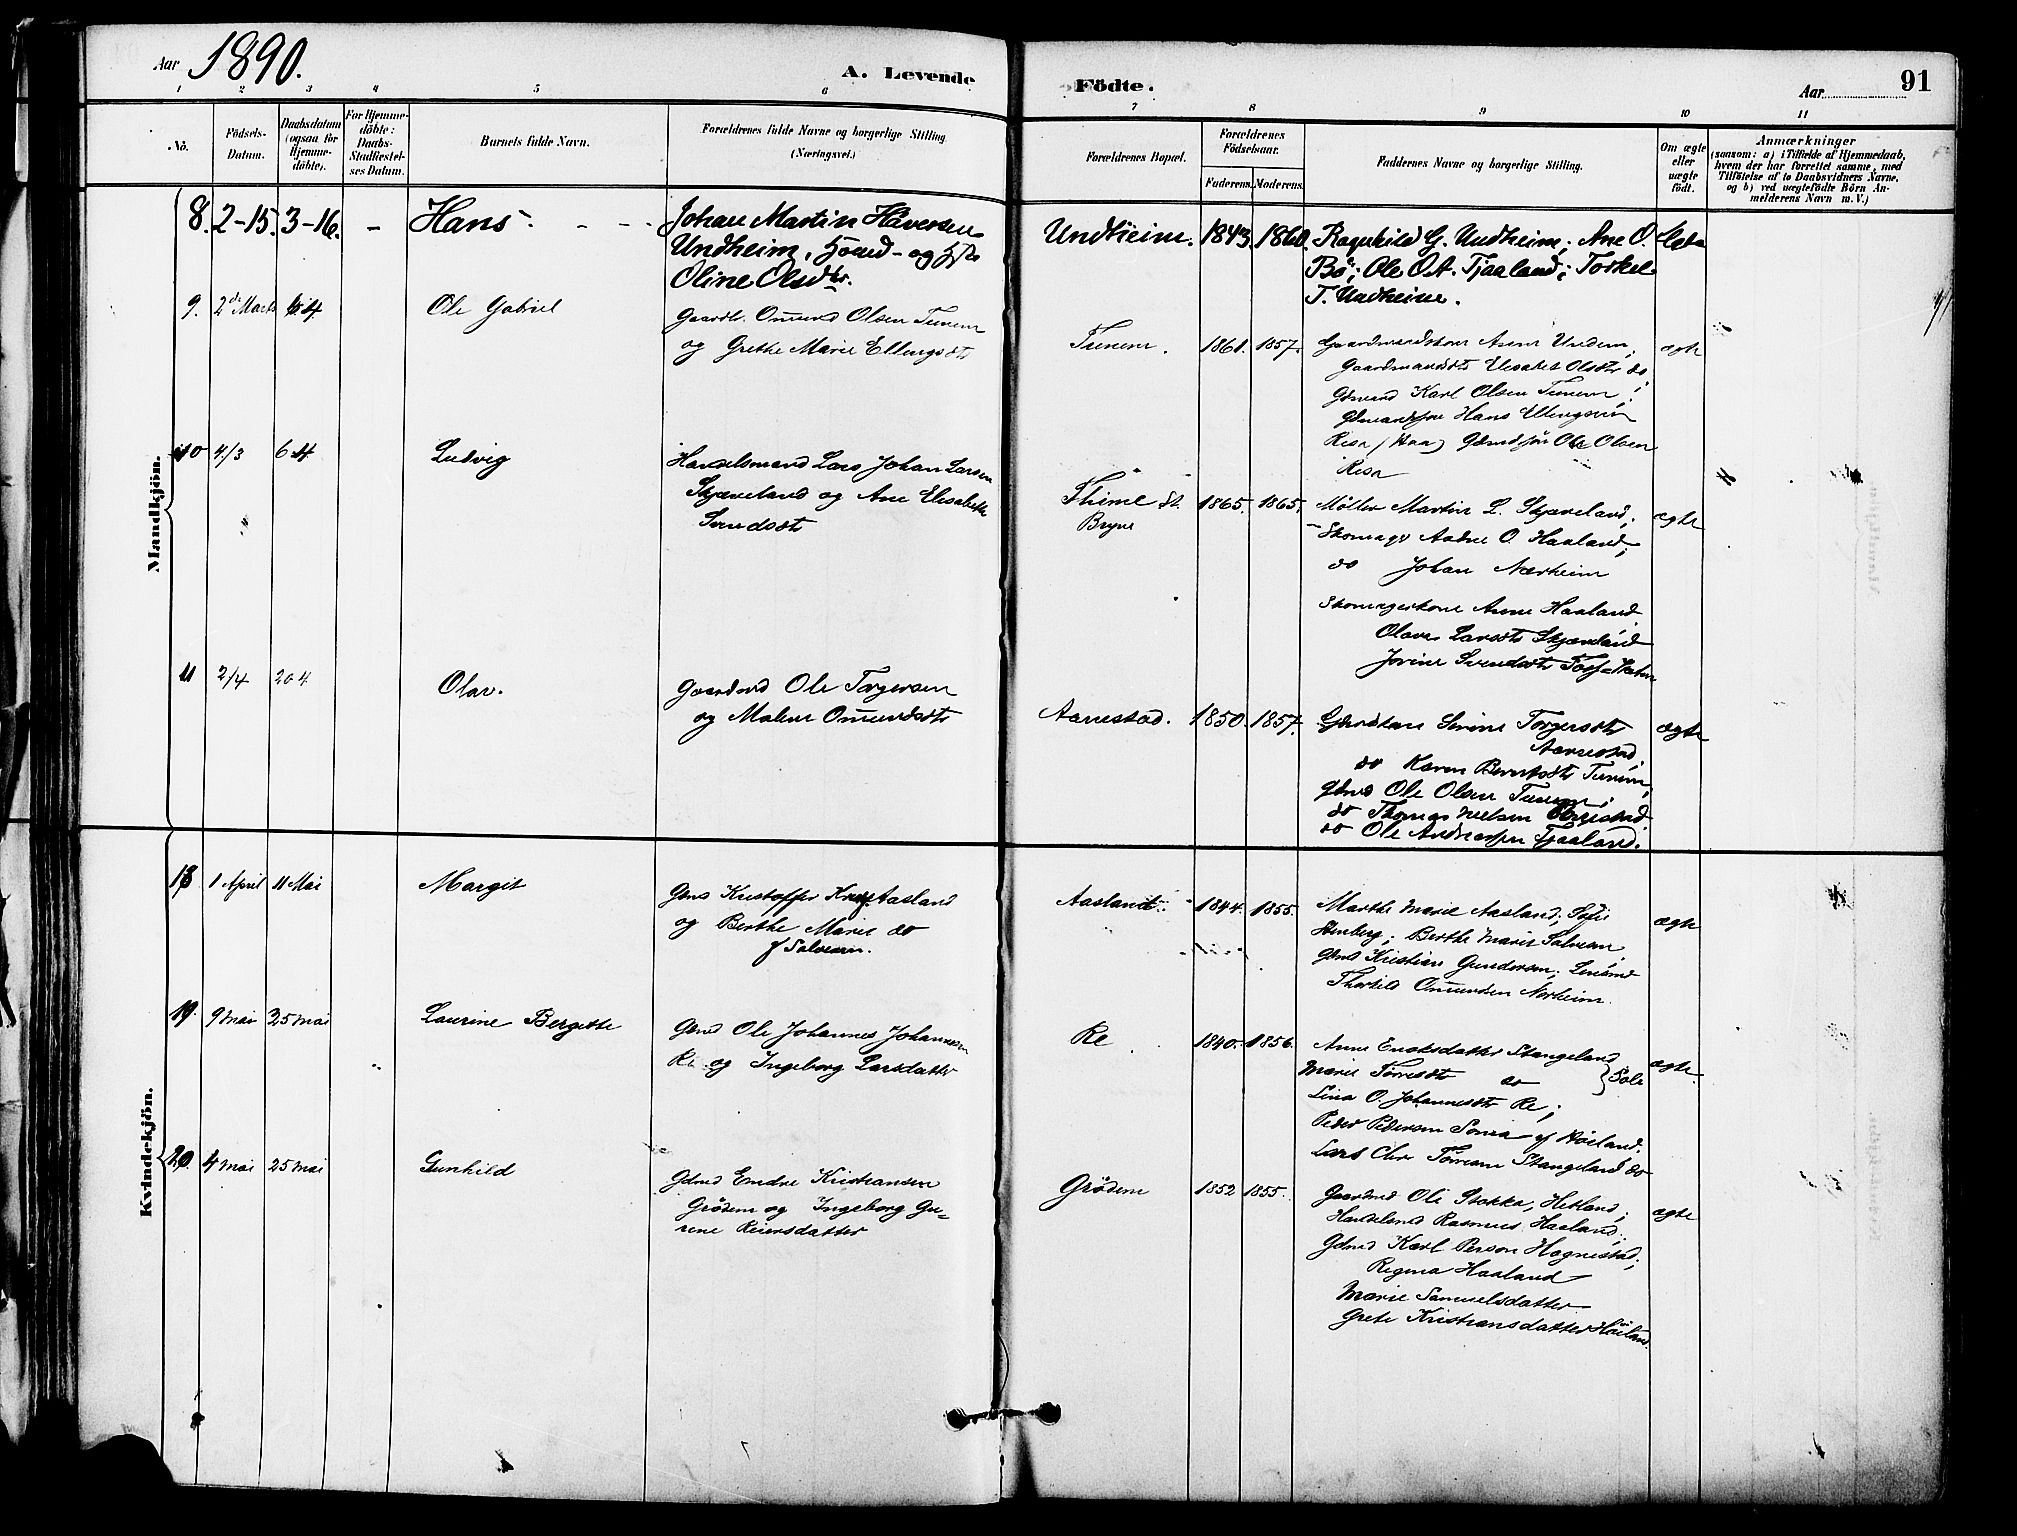 Aar 1890.
A. Levende
Födte.
Aar
91
1 2 3 4 5 6
7 8 9 10 11
No.
Födsels-
Datum.
Daabsdatum
(ogsaa for
Hjemme-
döbte).
For Hjemme-
döbte:
Daabs-
Stadfestel-
ses Datum.
Barnets fulde Navn.
Forældrenes fulde Navne og borgerlige Stilling
(Næringsvei.)
Forældrenes Bopæl.
Forældrenes
Födselsaar.
Faderens. Moderens.
Faddernes Navne og borgerlige Stilling.
Om ægte
eller
uægte
födt.
Anmærkninger
(saasom: a) i Tilfælde af Hjemmedaab,
hvem der har forrettet samme, med
Tilföielse af to Daabsvidners Navne,
og b) ved uægtefödte Börn An-
melderens Navn m. V.)
Mandkjön.
8. 2-15. 3-16. - Hans - - -
Johan Martin Håversen
Undheim, Hmd - og Hst
Oline Olsdtr.
Undheim. 1843. 1860.
Ragnhild G. Undheim; Ane O.
Bö; Ole O.A. Tjaaland; Torkel
T. Undheim.
Ægte
9. 2de Marts 4 Ole Gabriel
Gaardb. Omund Olsen Tunem
og Grethe Marie Ellingsdt
Tunem. 1861. 1857.
Gaardmandskone Anne Undem,
Gaardmandsdtr Elisabet Olsdtr do
Gdmand Karl Olsen Tunem;
Gdmandssøn Hans Ellingsen
Risa (Haa) Gdmdsøn Ole Olsen
Risa
ægte
10 4/3 6 4 Ludvig
Handelsmand Lars Johan Larsen
Skjæveland og Ane Elisabeth
Svendsdt
Thime St.
Bryne
1865. 1865.
Møller Martin L. Skjæveland;
Skomager Aadne O. Haaland;
do Johan Nærheim
Skomagerkone Anne Haaland
Olava Larsdtr Skjæveland
Jorine Svendsdtr
ægte
11 2/4 20 4 Olav.
Gaardmd Ole Torgersen
og Malene Omundsdt
Aarrestad. 1850. 1857.
Gdmdskone Serine Torgersdtr
Aarrestad,
do Karen Berntsdtr Tunem,
Gdmd Ole Olsen Tunem;
do Thomas Nielsen
do Ole Andreassen Tjaaland.
ægte
Kvindekjön.
18 1 April 11 Mai Margit
Gmd Kristoffer Aasland
og Berthe Marie do
f Salvesen.
Aasland. 1844. 1855.
Marthe Marie Aasland; Sofie
Stenberg; Berthe Marie Salvesen
Gdmd Kristian Gundersen; Lensmd
Thorkild Omundsen Norheim.
ægte
19. 9 Mai 25 Mai Laurine Bergitte
Gdmd Ole Johannes Johannesen
Re og Ingeborg Larsdatter
Re 1840. 1856.
Anne Enoksdatter Stangeland
Marie Torresdt do } Sole
Lina O. Johannesdtr Re;
Peder Pedersen Sonia af Höiland.
Lars Chr Törresen Stangeland do
ægte.
20. 4 Mai 25 Mai Gunhild
Gdmd Endre Kristiansen
Grödem og Ingeborg Gu-
rine Reiersdatter
Grödem 1852 1855.
Gaardmd Ole Stokka, Hetland;
Handelsmd Rasmus Haaland;
Gdmd Karl Person Hognestad;
Regina Haaland
Marie Samuelsdatter
Grete Kristiansdatter Höiland.
ægte